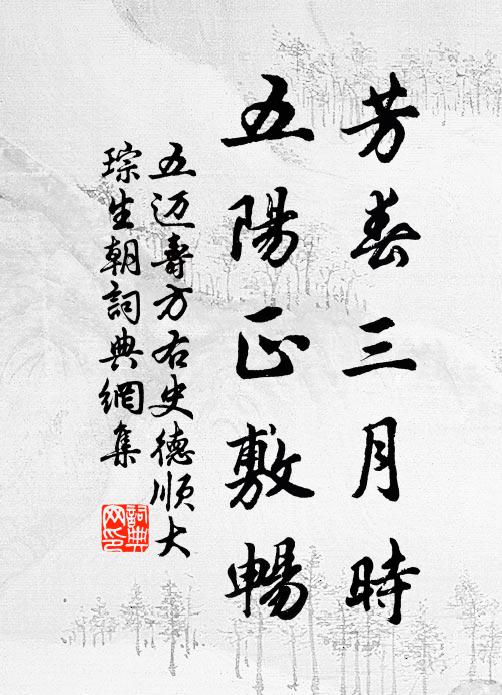 芳春三月時
五陽正敷暢
五迈壽方右史德順大
琮生朝詞典網集
詞典網印